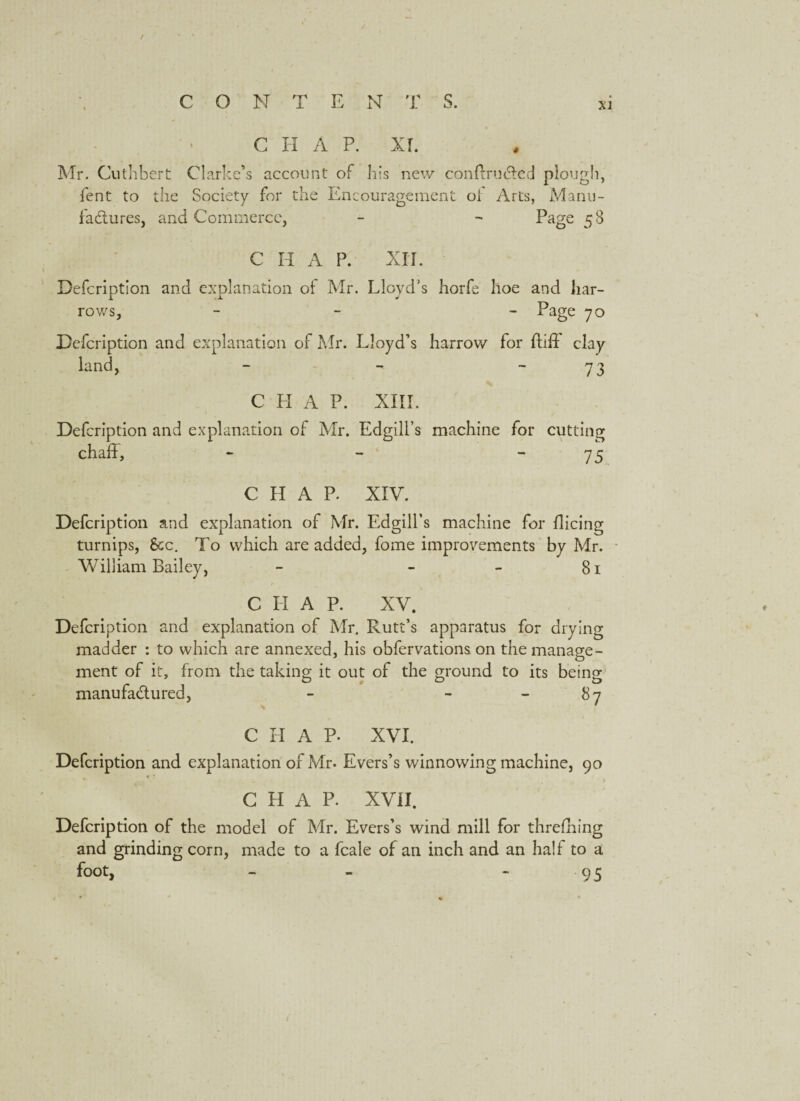 CONTENTS. xi
CHAP. XI.
Mr. Cuthbert Clarke's account of his new conſtructed plough,
ſent to the Society for the Encouragement of Arts, Manu-
factures, and Commerce, - - Page 58
CHAP. XII.
Deſcription and explanation of Mr. Lloyd's horſe hoe and har-
rows, - - - Page 70
Deſcription and explanation of Mr. Lloyd's harrow for ſtiff clay
land, - - - 73
CHAP. XIII.
Deſcription and explanation of Mr. Edgill's machine for cutting
chaff, - - - 75
CHAP. XIV.
Deſcription and explanation of Mr. Edgill's machine for ſlicing
turnips, &c. To which are added, ſome improvements by Mr.
William Bailey, - - - 81
CHAP. XV.
Deſcription and explanation of Mr. Rutt's apparatus for drying
madder : to which are annexed, his obſervations on the manage-
ment of it, from the taking it out of the ground to its being
manufactured, - - - 87
CHAP. XVI.
Deſcription and explanation of Mr. Evers's winnowing machine, 90
CHAP. XVII.
Deſcription of the model of Mr. Evers's wind mill for threſhing
and grinding corn, made to a ſcale of an inch and an half to a
foot, - - - 95